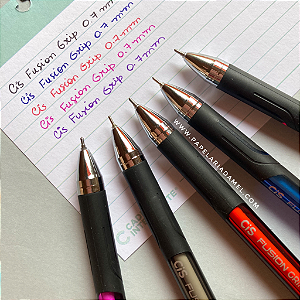 Cis Fusion Grip 0.7mm
Cis Fusion Grip 0.7mm
Cis Fusion Grip 0.7mm
Cis Fusion Grip 0.7mm
Cis Fusion Grip 0.7mm
WWW.PAPELARIADAMEL.COM
CiS FUSION GR
CiS FUSION